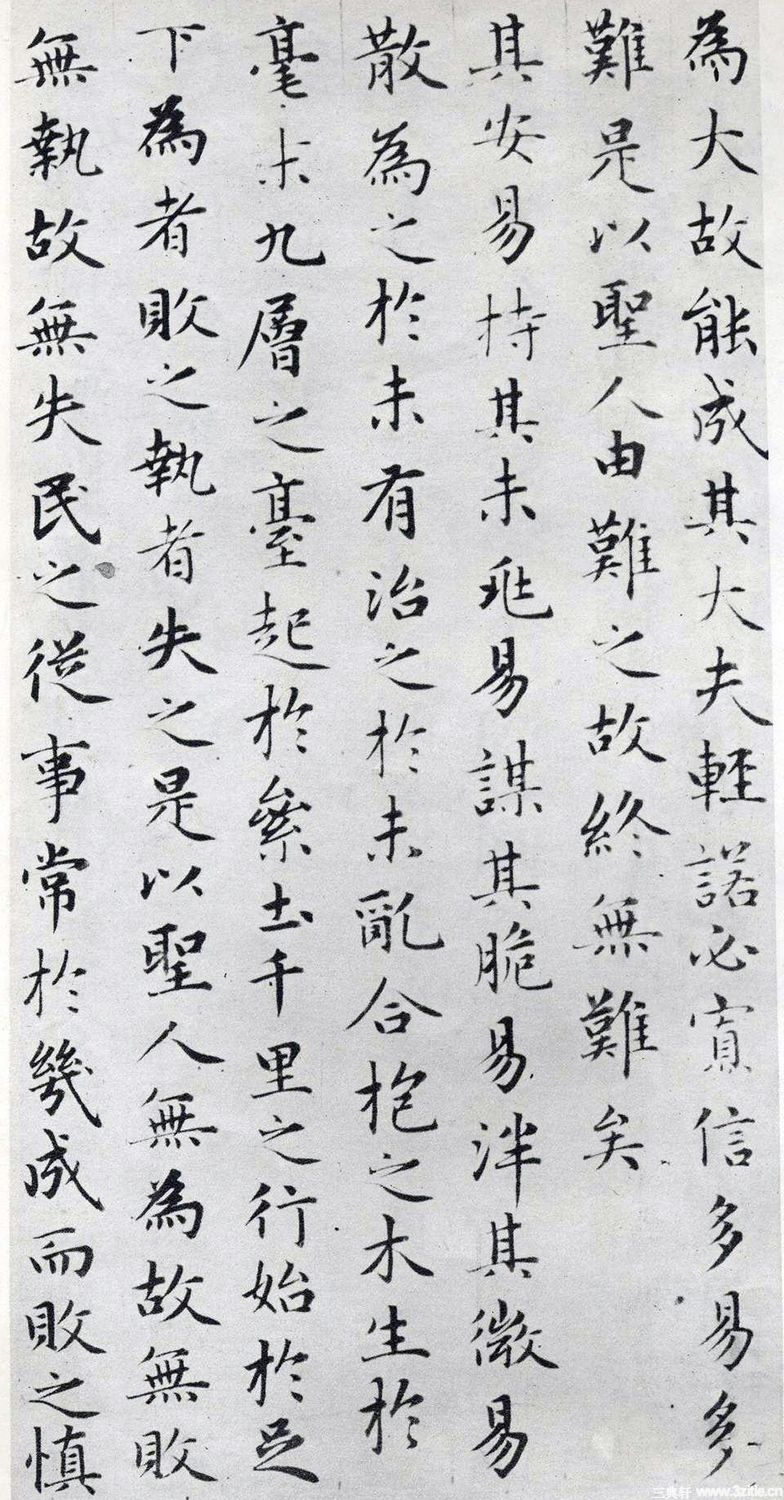 為大故能成其大夫輕諾必寡信多易多
難是以聖人由難之故終無難矣
其安易持其未兆易謀其脆易泮其微易
散為之於未有治之於未亂合抱之木生於
毫末九層之臺起於絫土千里之行始於足
下為者敗之執者失之是以聖人無為故無敗
無執故無失民之從事常於幾成而敗之慎
三典轩 www.3zitie.cn